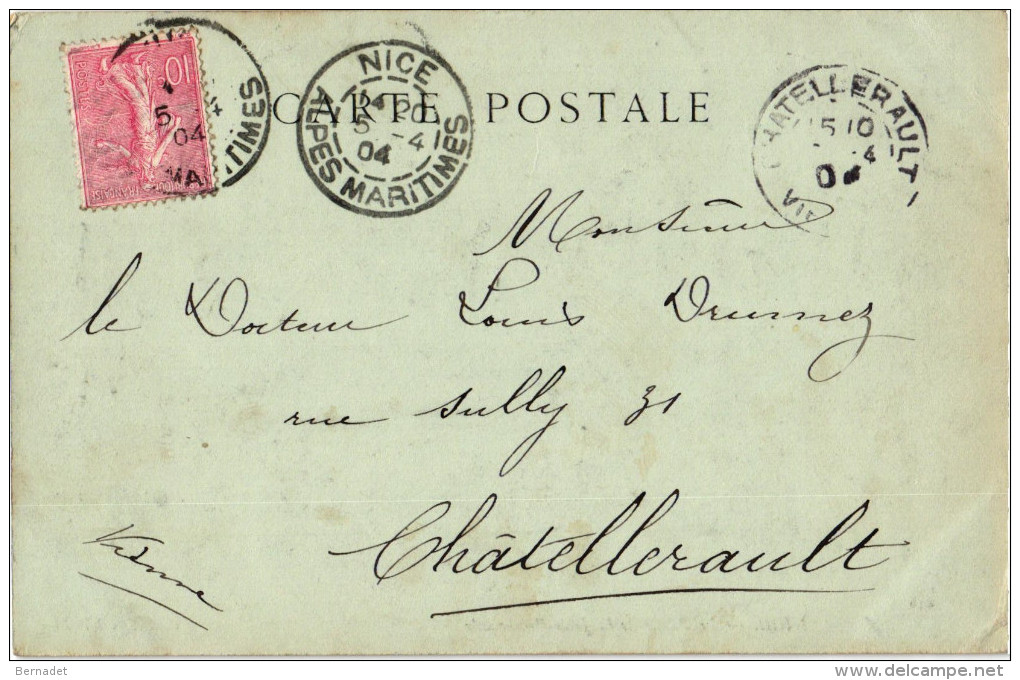 10
POSTES
5
04
MARITIMES
NICE
20
5 -4
04
ALPES MARITIMES
CARTE POSTALE
CHATELLERAULT
15 10
-4
0
Monsieur
le Docteur Louis
rue Sully 31
Châtellerault
Vienne
Bernadet
www.delcampe.net